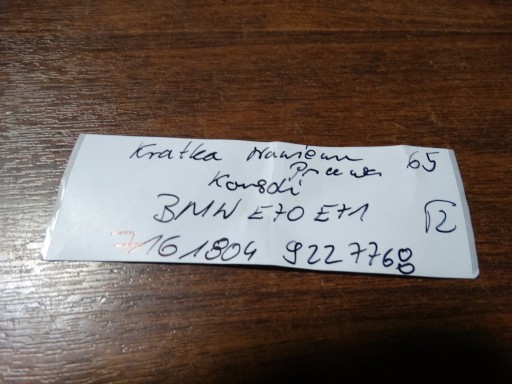 Kratka Nawiewu 65
Prawa
Konsoli
BMW E70 E71 R
161804 9227768